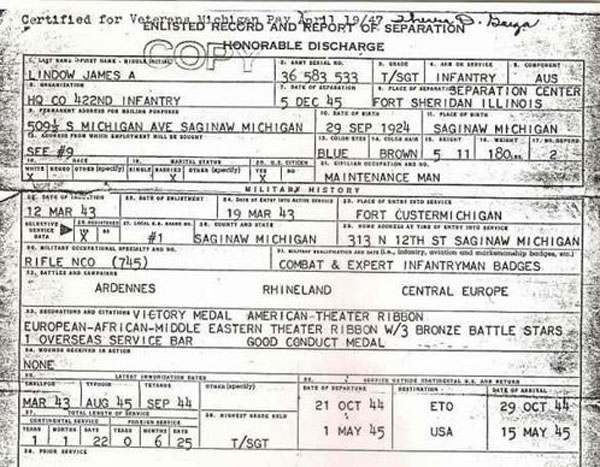 Certified for Veterans Michigan Pay April 19/47
ENLISTED RECORD AND REPORT OF SEPARATION
HONORABLE DISCHARGE
COPY
1. LAST NAME - FIRST NAME - MIDDLE INITIAL 2. ARMY SERIAL NO. 3. GRADE 4. ARM OR SERVICE 5. COMPONENT
LINDOW JAMES A 36 583 533 T/SGT INFANTRY AUS
6. ORGANIZATION 7. DATE OF SEPARATION 8. PLACE OF SEPARATION SEPARATION CENTER
HQ CO 422ND INFANTRY 5 DEC 45 FORT SHERIDAN ILLINOIS
9. PERMANENT ADDRESS FOR MAILING PURPOSES 10. DATE OF BIRTH 11. PLACE OF BIRTH
509½ S MICHIGAN AVE SAGINAW MICHIGAN 29 SEP 1924 SAGINAW MICHIGAN
12. ADDRESS FROM WHICH EMPLOYMENT WILL BE SOUGHT 13. COLOR EYES 14. COLOR HAIR 15. HEIGHT 16. WEIGHT 17. NO. DEPEND.
SEE #9 BLUE BROWN 5 11 180 2
18. RACE 19. MARITAL STATUS 20. U.S. CITIZEN 21. CIVILIAN OCCUPATION AND NO.
WHITE NEGRO OTHER (specify) SINGLE MARRIED OTHER (specify) YES NO
X X X MAINTENANCE MAN
MILITARY HISTORY
22. DATE OF INDUCTION 23. DATE OF ENLISTMENT 24. DATE OF ENTRY INTO ACTIVE SERVICE 25. PLACE OF ENTRY INTO SERVICE
12 MAR 43 19 MAR 43 FORT CUSTERMICHIGAN
SELECTIVE SERVICE DATA 26. REGISTERED 27. LOCAL S.S. BOARD NO. 28. COUNTY AND STATE 29. HOME ADDRESS AT TIME OF ENTRY INTO SERVICE
X #1 SAGINAW MICHIGAN 313 N 12TH ST SAGINAW MICHIGAN
30. MILITARY OCCUPATIONAL SPECIALTY AND NO. 31. MILITARY QUALIFICATION AND DATE (i.e., infantry, aviation and marksmanship badges, etc.)
RIFLE NCO (745) COMBAT & EXPERT INFANTRYMAN BADGES
32. BATTLES AND CAMPAIGNS
ARDENNES RHINELAND CENTRAL EUROPE
33. DECORATIONS AND CITATIONS VICTORY MEDAL AMERICAN-THEATER RIBBON
EUROPEAN-AFRICAN-MIDDLE EASTERN THEATER RIBBON W/3 BRONZE BATTLE STARS
1 OVERSEAS SERVICE BAR GOOD CONDUCT MEDAL
34. WOUNDS RECEIVED IN ACTION
NONE
35. LATEST IMMUNIZATION DATES 36. SERVICE OUTSIDE CONTINENTAL U.S. AND RETURN
SMALLPOX TYPHOID TETANUS OTHER (specify) DATE OF DEPARTURE DESTINATION DATE OF ARRIVAL
MAR 43 AUG 45 SEP 44 21 OCT 44 ETO 29 OCT 44
37. TOTAL LENGTH OF SERVICE 38. HIGHEST GRADE HELD
CONTINENTAL SERVICE FOREIGN SERVICE 1 MAY 45 USA 15 MAY 45
YEARS MONTHS DAYS YEARS MONTHS DAYS
1 1 22 0 6 25 T/SGT
39. PRIOR SERVICE